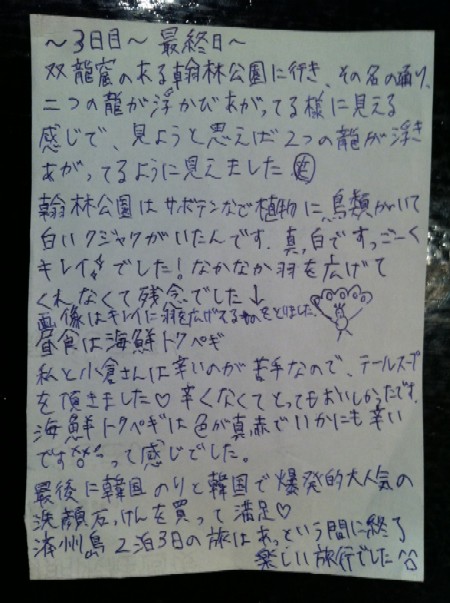 ～3日目～ 最終日～
双龍窟のある翰林公園に行き、その名の通り、
二つの龍が浮かびあがってる様に見える
感じで、見ようと思えば2つの龍が浮き
あがってるように見えました
翰林公園はサボテンなど植物に、鳥類がいて
白いクジャクがいたんです。真っ白ですっごーく
キレイでした!なかなか羽を広げて
くれなくて残念でした↓
画像はキレイに羽を広げてるものをとりました
昼食は海鮮トクペギ
私と小倉さんは辛いのが苦手なので、テールスープ
を頂きました♡辛くなくてとってもおいしかったです。
海鮮トクペギは色が真赤でいかにも辛い
です って感じでした。
最後に韓国のりと韓国で爆発的大人気の
洗顔石けんを買って満足♡
済州島2泊3日の旅はあっという間に終了
楽しい旅行でした^^